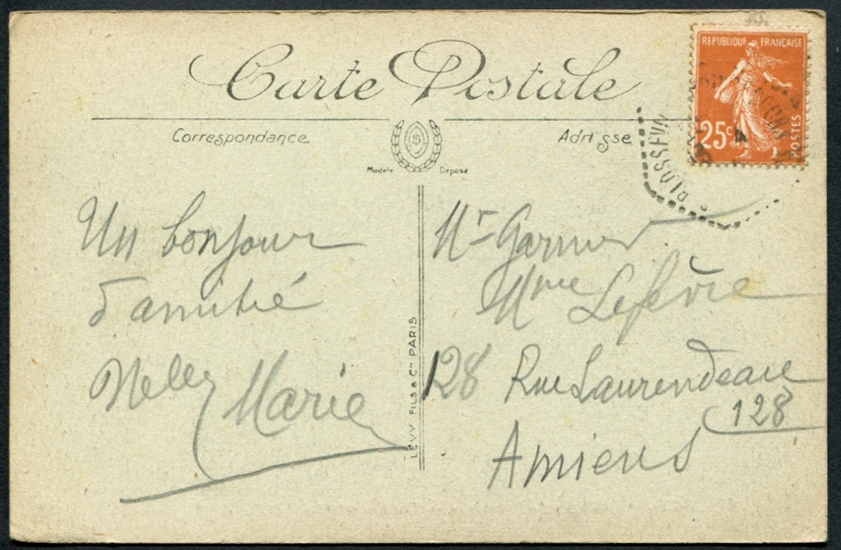 Carte Postale
Correspondance
Adresse
Modèle Déposé
REPUBLIQUE FRANÇAISE
25c
POSTES
Un bonjour
d'amitié
Nelly Marie
LÉVY FILS & Cie PARIS
Mr Garnier
Mme Lefèvre
128 Rue Laurendeau
128
Amiens